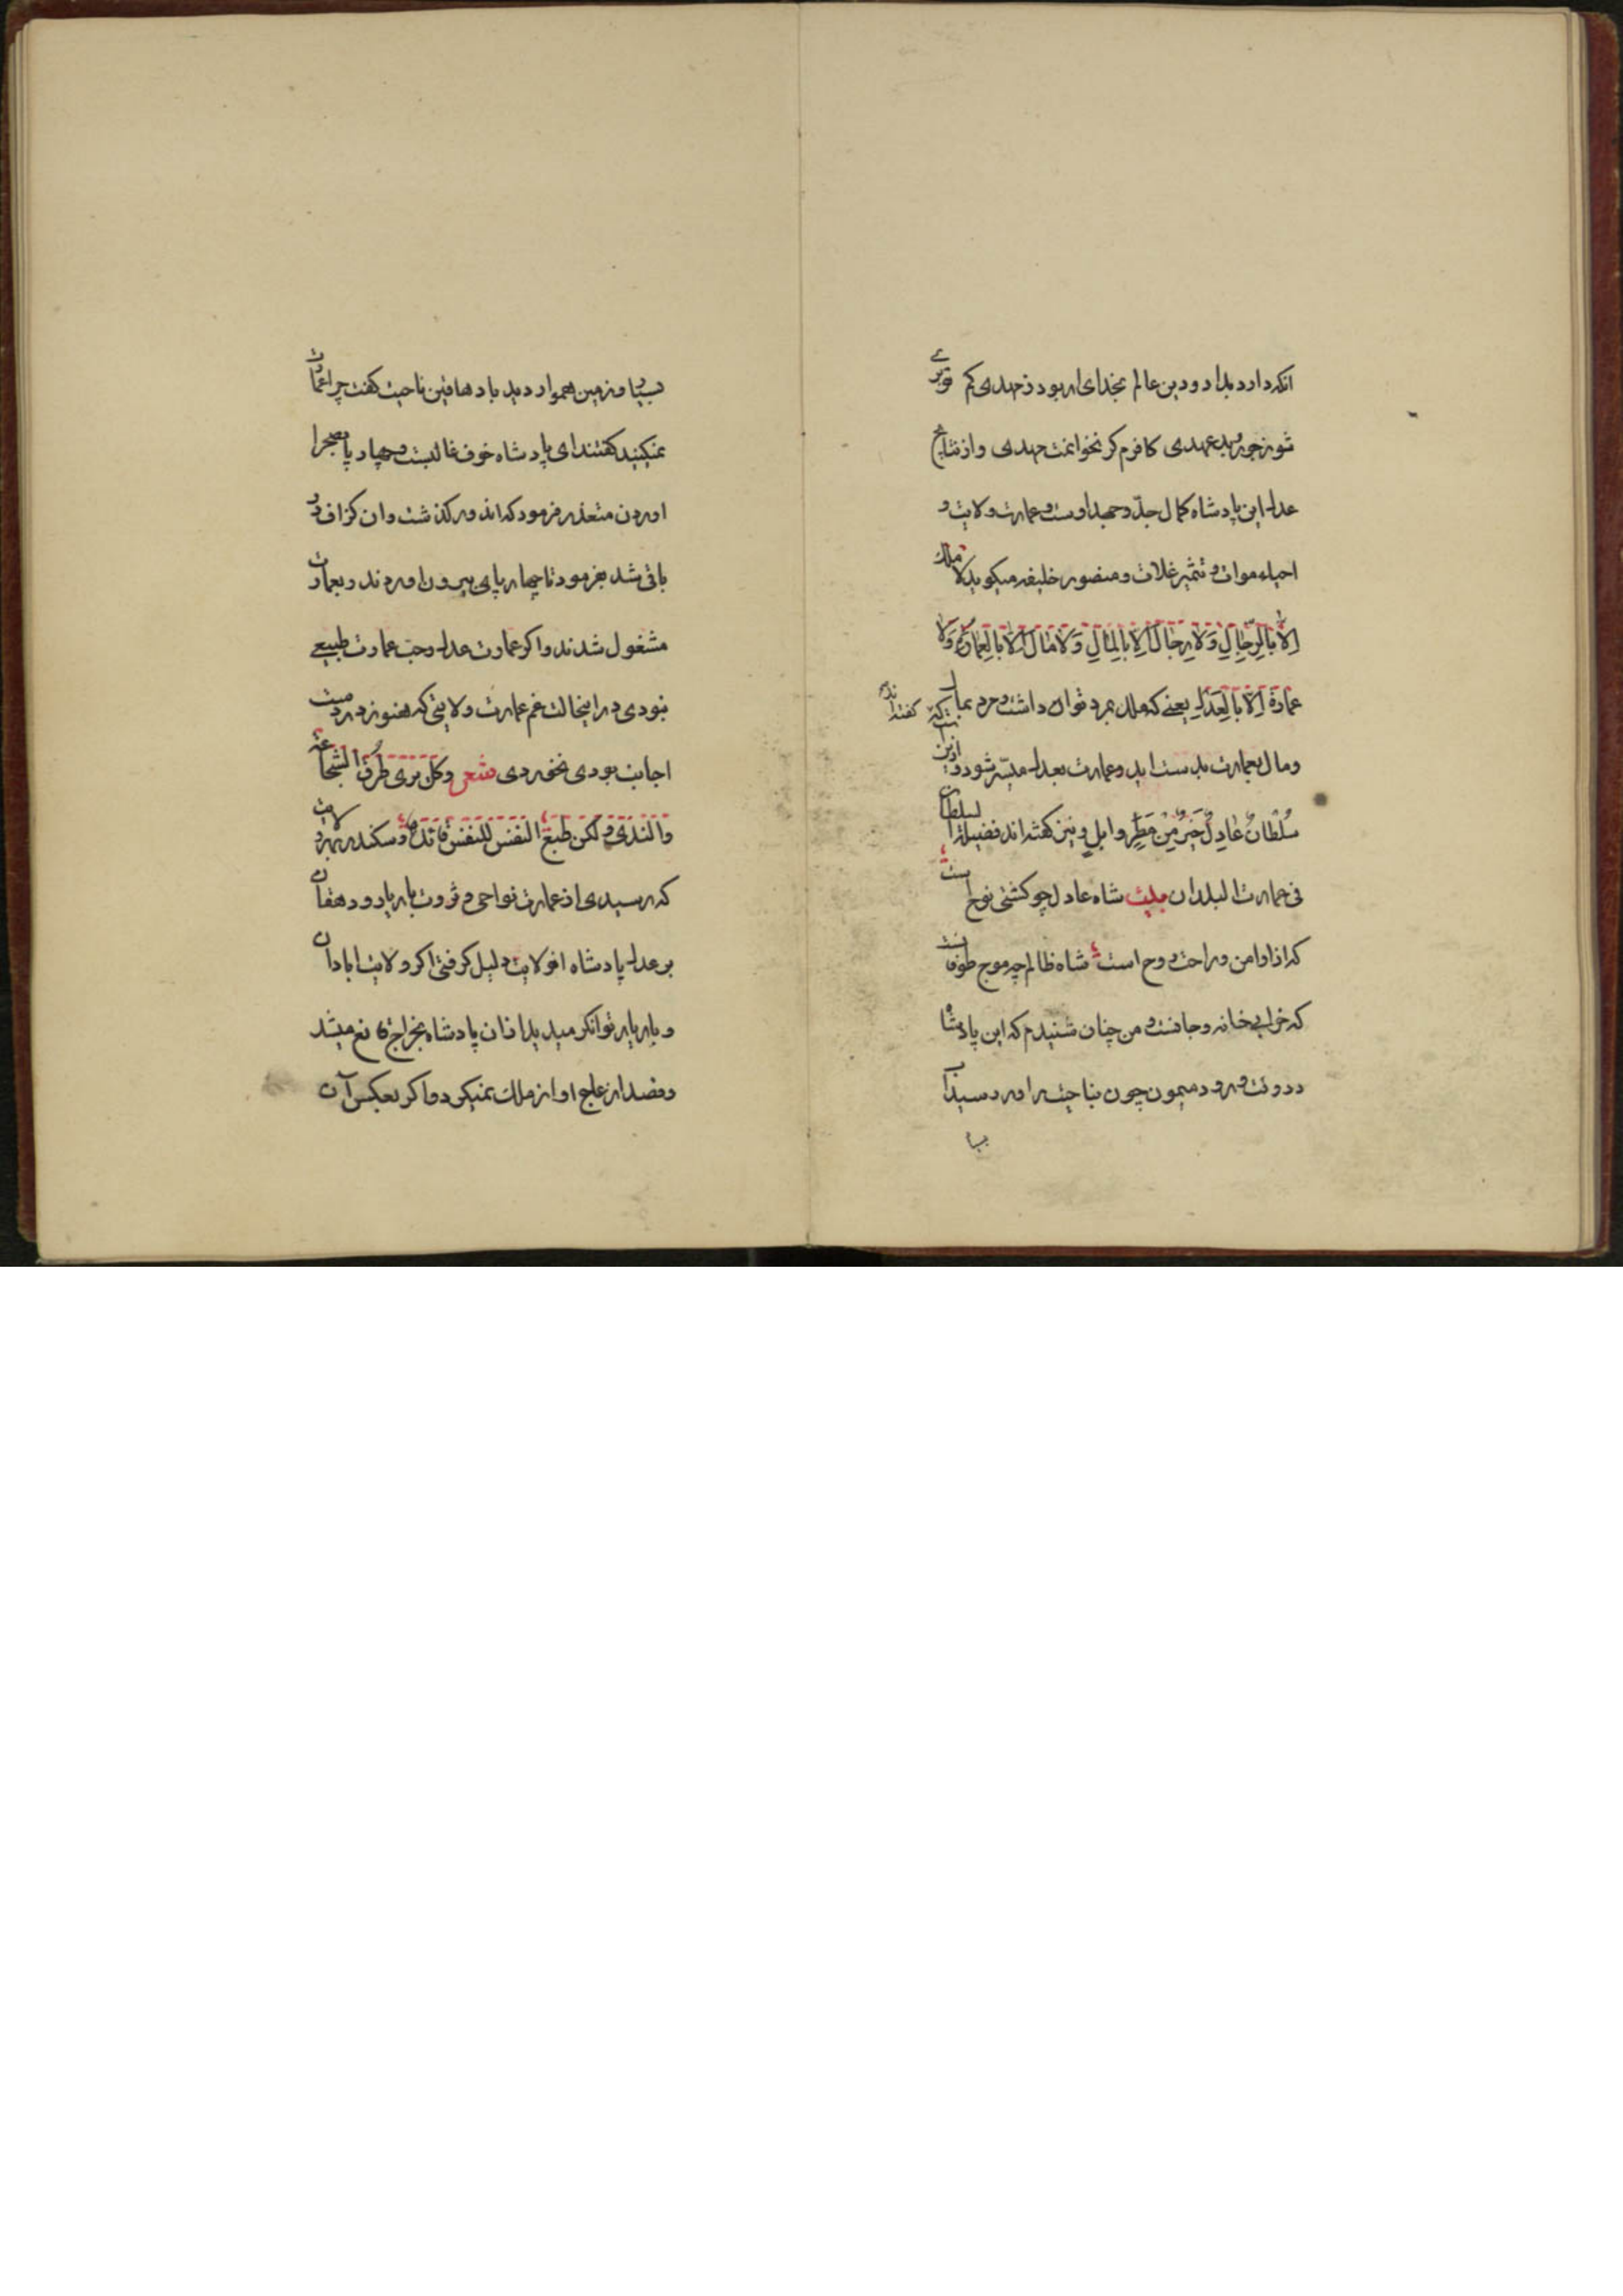 انکه دارد بداد و دین عالم بخدای ار بود ز مهدی کم
عدل این پادشاه کمال جدّ و جهد اوست و عمارت ولایت و
احیاء موات و تثمیر غلات و منصور خلیفه میکوید لا ملک
اِلّا بِالرِّجالِ وَلا رِجالَ اِلّا بِالمالِ وَلا مالَ اِلّا بِالعِمارَةِ وَلا
عمارَةَ اِلّا بِالعَدلِ یعنی که ملک بمرد توان داشت و مردم بمال
ومال بعمارت بدست اید وعمارت بعدل میسّر شود و ازین
سُلْطانٌ عادِلٌ خَیرٌ مِنْ مَطَرٍ وابلٍ و نیز کفته اند فضیلة السلطان
فی عمارت البلدان بیت شاه عادل چو کشتی نوح است
که ازو امن و راحت روح است شاه ظالم چو موج طوفانست
که خرابی خانه و جانست و من چنان شنیدم که این پادشاه
در وقت ورود میمون چون بناحیت راور رسید آب
بسیار و زمین هموار دید با دهاقین ناحیت کفت چرا عمارت
نمیکنید کفتند ای پادشاه خوف غالبست و چهار پا بصحرا
اوردن متعذر فرمود که اندور کذشت وان کزاف
باقی نشد بفرمود تا چهار پای بیرون اوردند و بعمارت
مشغول شدند و اکر عمارت عدل و حب عمارت طبیعی
نبودی در اینحالت غم عمارت ولایتی که هنوز در
اجابت بودی نخوردی شعر وکل یری طرق الشجاعة
والندی ولکن طبع النفس للنفس قائد و سکندر بهر ولایت
که رسیدی از عمارت نواحی و ثروت بازیار و دهقان
بر عدل پادشاه ان ولایت دلیل کرفتی اکر ولایت ابادان
و بازیار توانکر میدید از ان پادشاه بخراج قانع میشد
وقصد ازعاج او از ملک نمیکرد و اکر بعکس آن